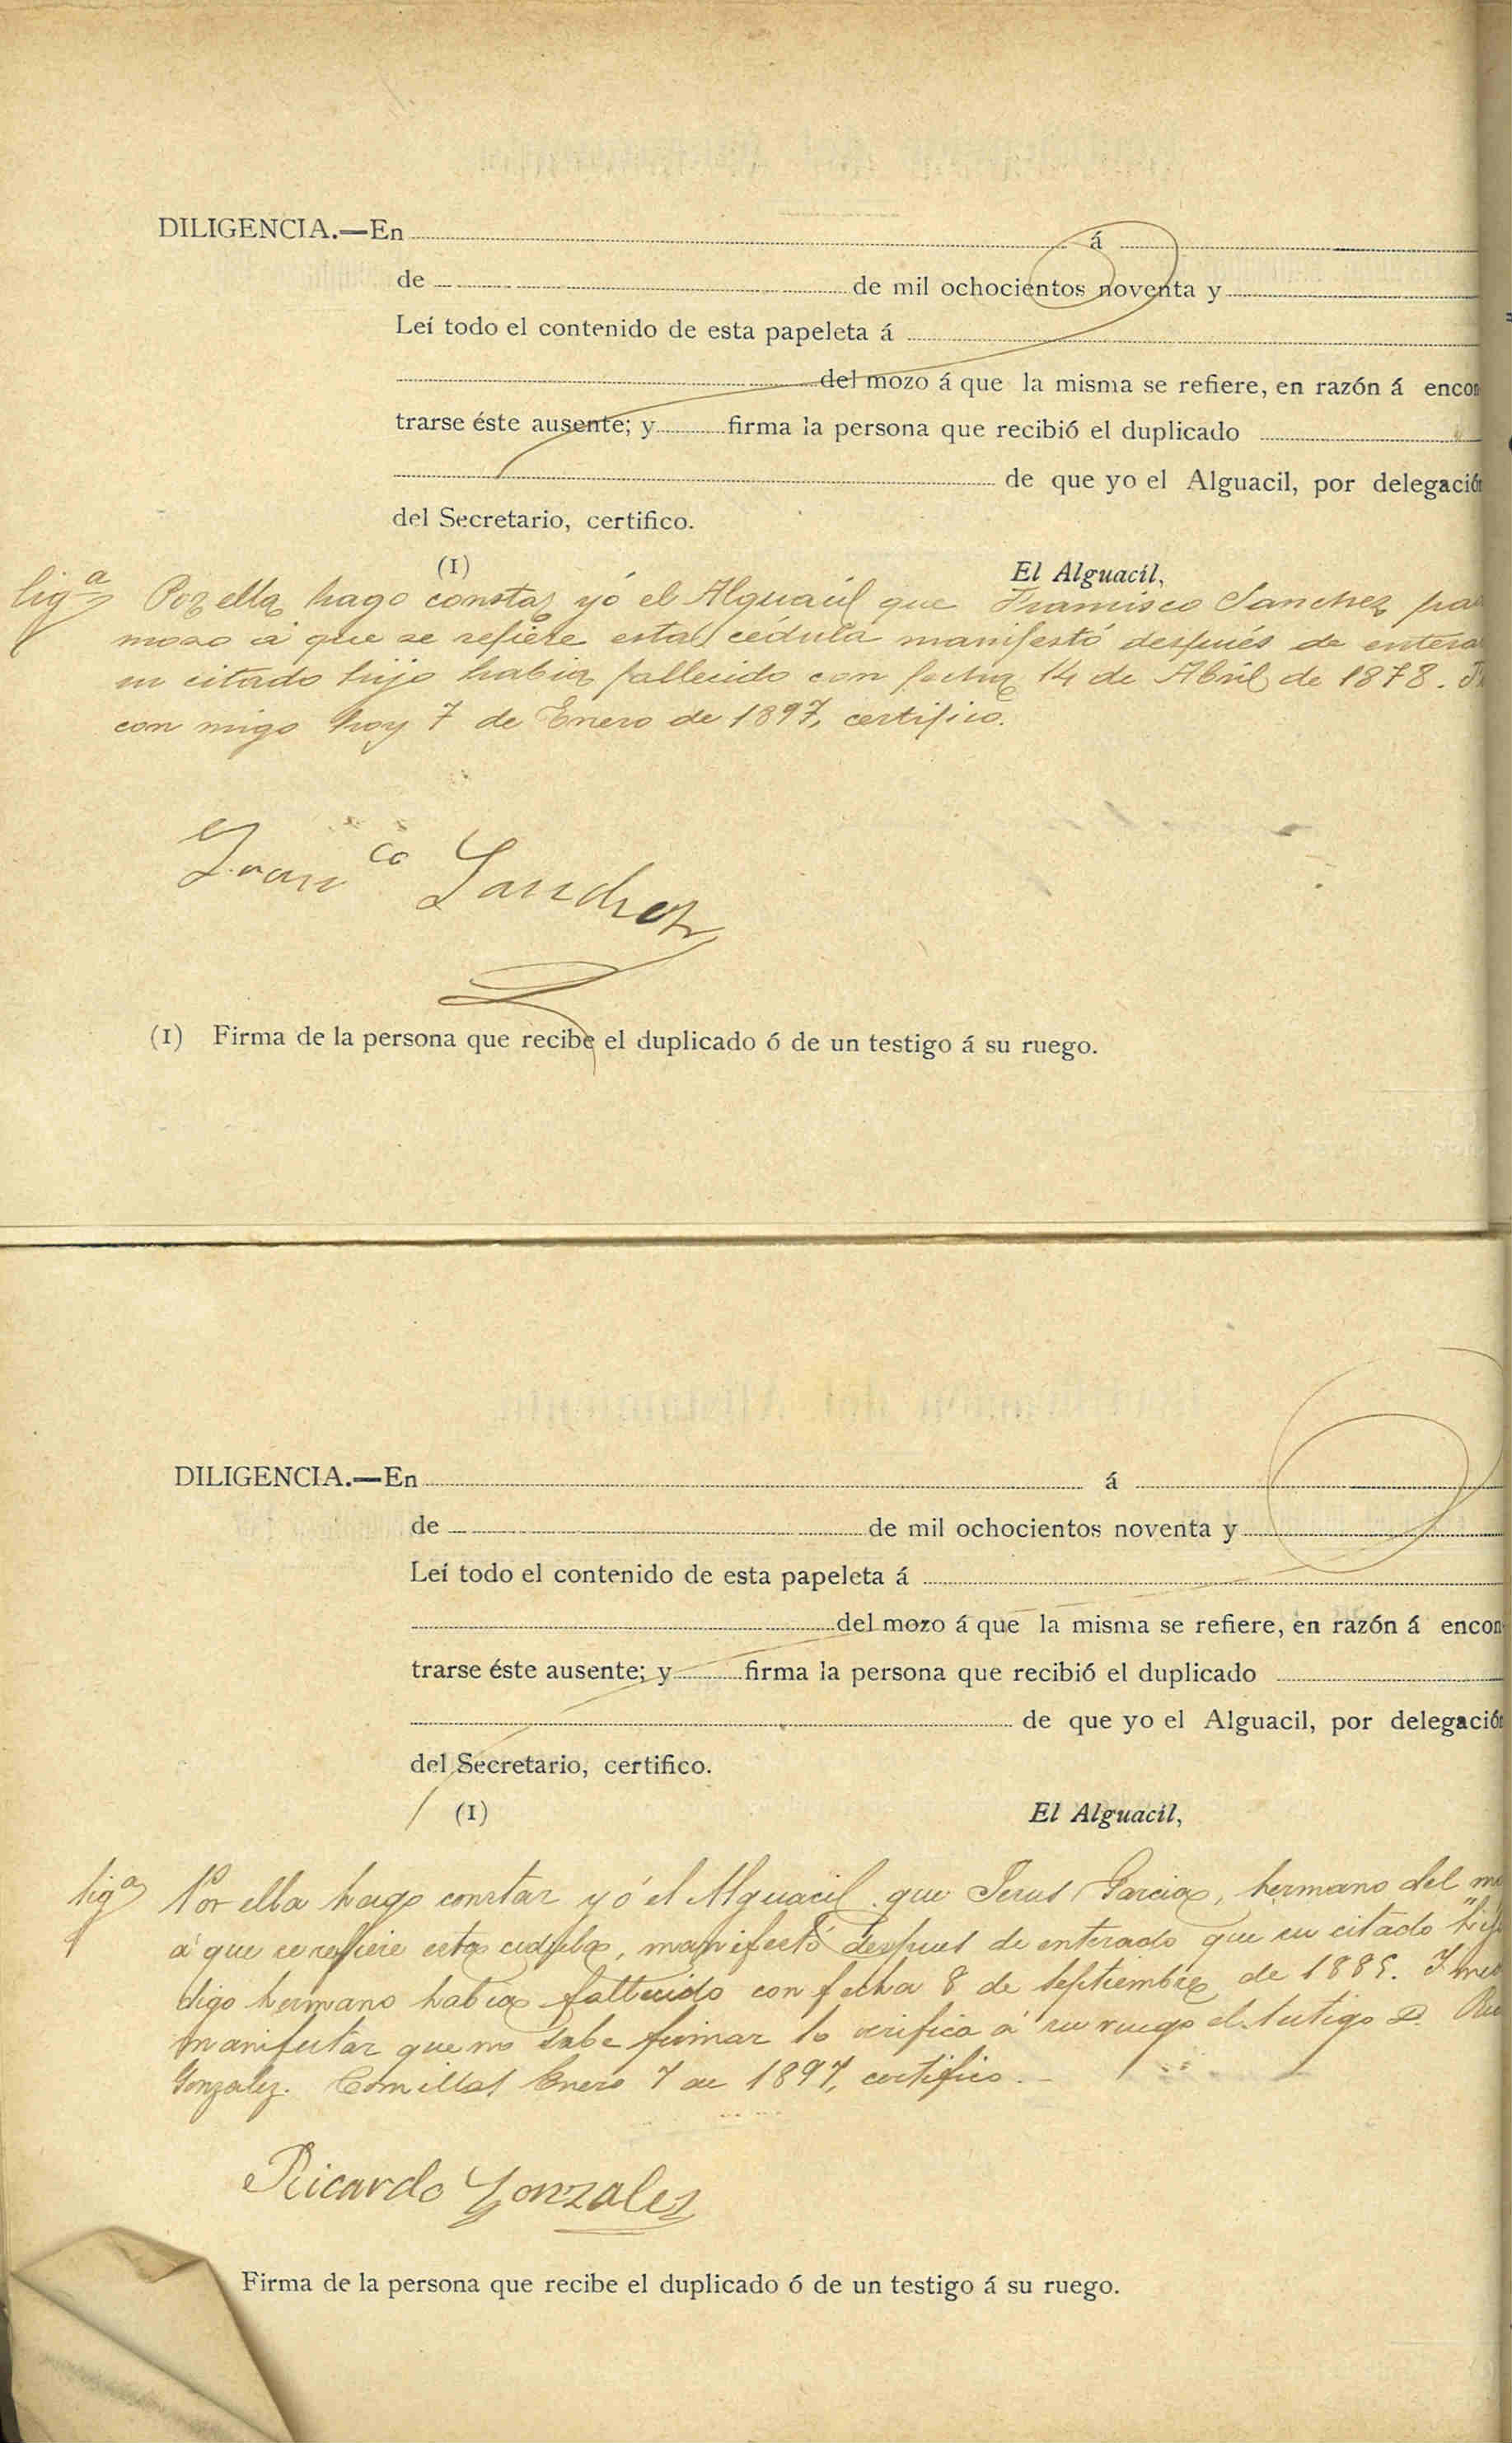 DILIGENCIA.—En á
de de mil ochocientos noventa y
Leí todo el contenido de esta papeleta á
del mozo á que la misma se refiere, en razón á encon
trarse éste ausente; y firma la persona que recibió el duplicado
de que yo el Alguacil, por delegación
del Secretario, certifico.
(1) El Alguacil,
ligª Por ella hago constar yó el Alguacil que Francisco Sanchez pa
mozo á que se refiere esta cédula manifestó después de entera
su citado hijo habia fallecido con fecha 14 de Abril de 1878.
con migo hoy 7 de Enero de 1897, certifico.
Franco Sanchez
(1) Firma de la persona que recibe el duplicado ó de un testigo á su ruego.
DILIGENCIA.—En á
de de mil ochocientos noventa y
Leí todo el contenido de esta papeleta á
del mozo á que la misma se refiere, en razón á encon
trarse éste ausente; y firma la persona que recibió el duplicado
de que yo el Alguacil, por delegación
del Secretario, certifico.
(1) El Alguacil,
ligª Por ella hago constar yó el Alguacil que Jesus Garcia, hermano del m
á que se refiere esta cedula, manifestó despues de enterado que su citado "hijo
digo hermano habia fallecido con fecha 8 de Septiembre de 1885.
manifestar que no sabe firmar lo verifica á su ruego el testigo D.
Gonzalez. Comillas Enero 7 de 1897, certifico.
Ricardo Gonzalez
Firma de la persona que recibe el duplicado ó de un testigo á su ruego.